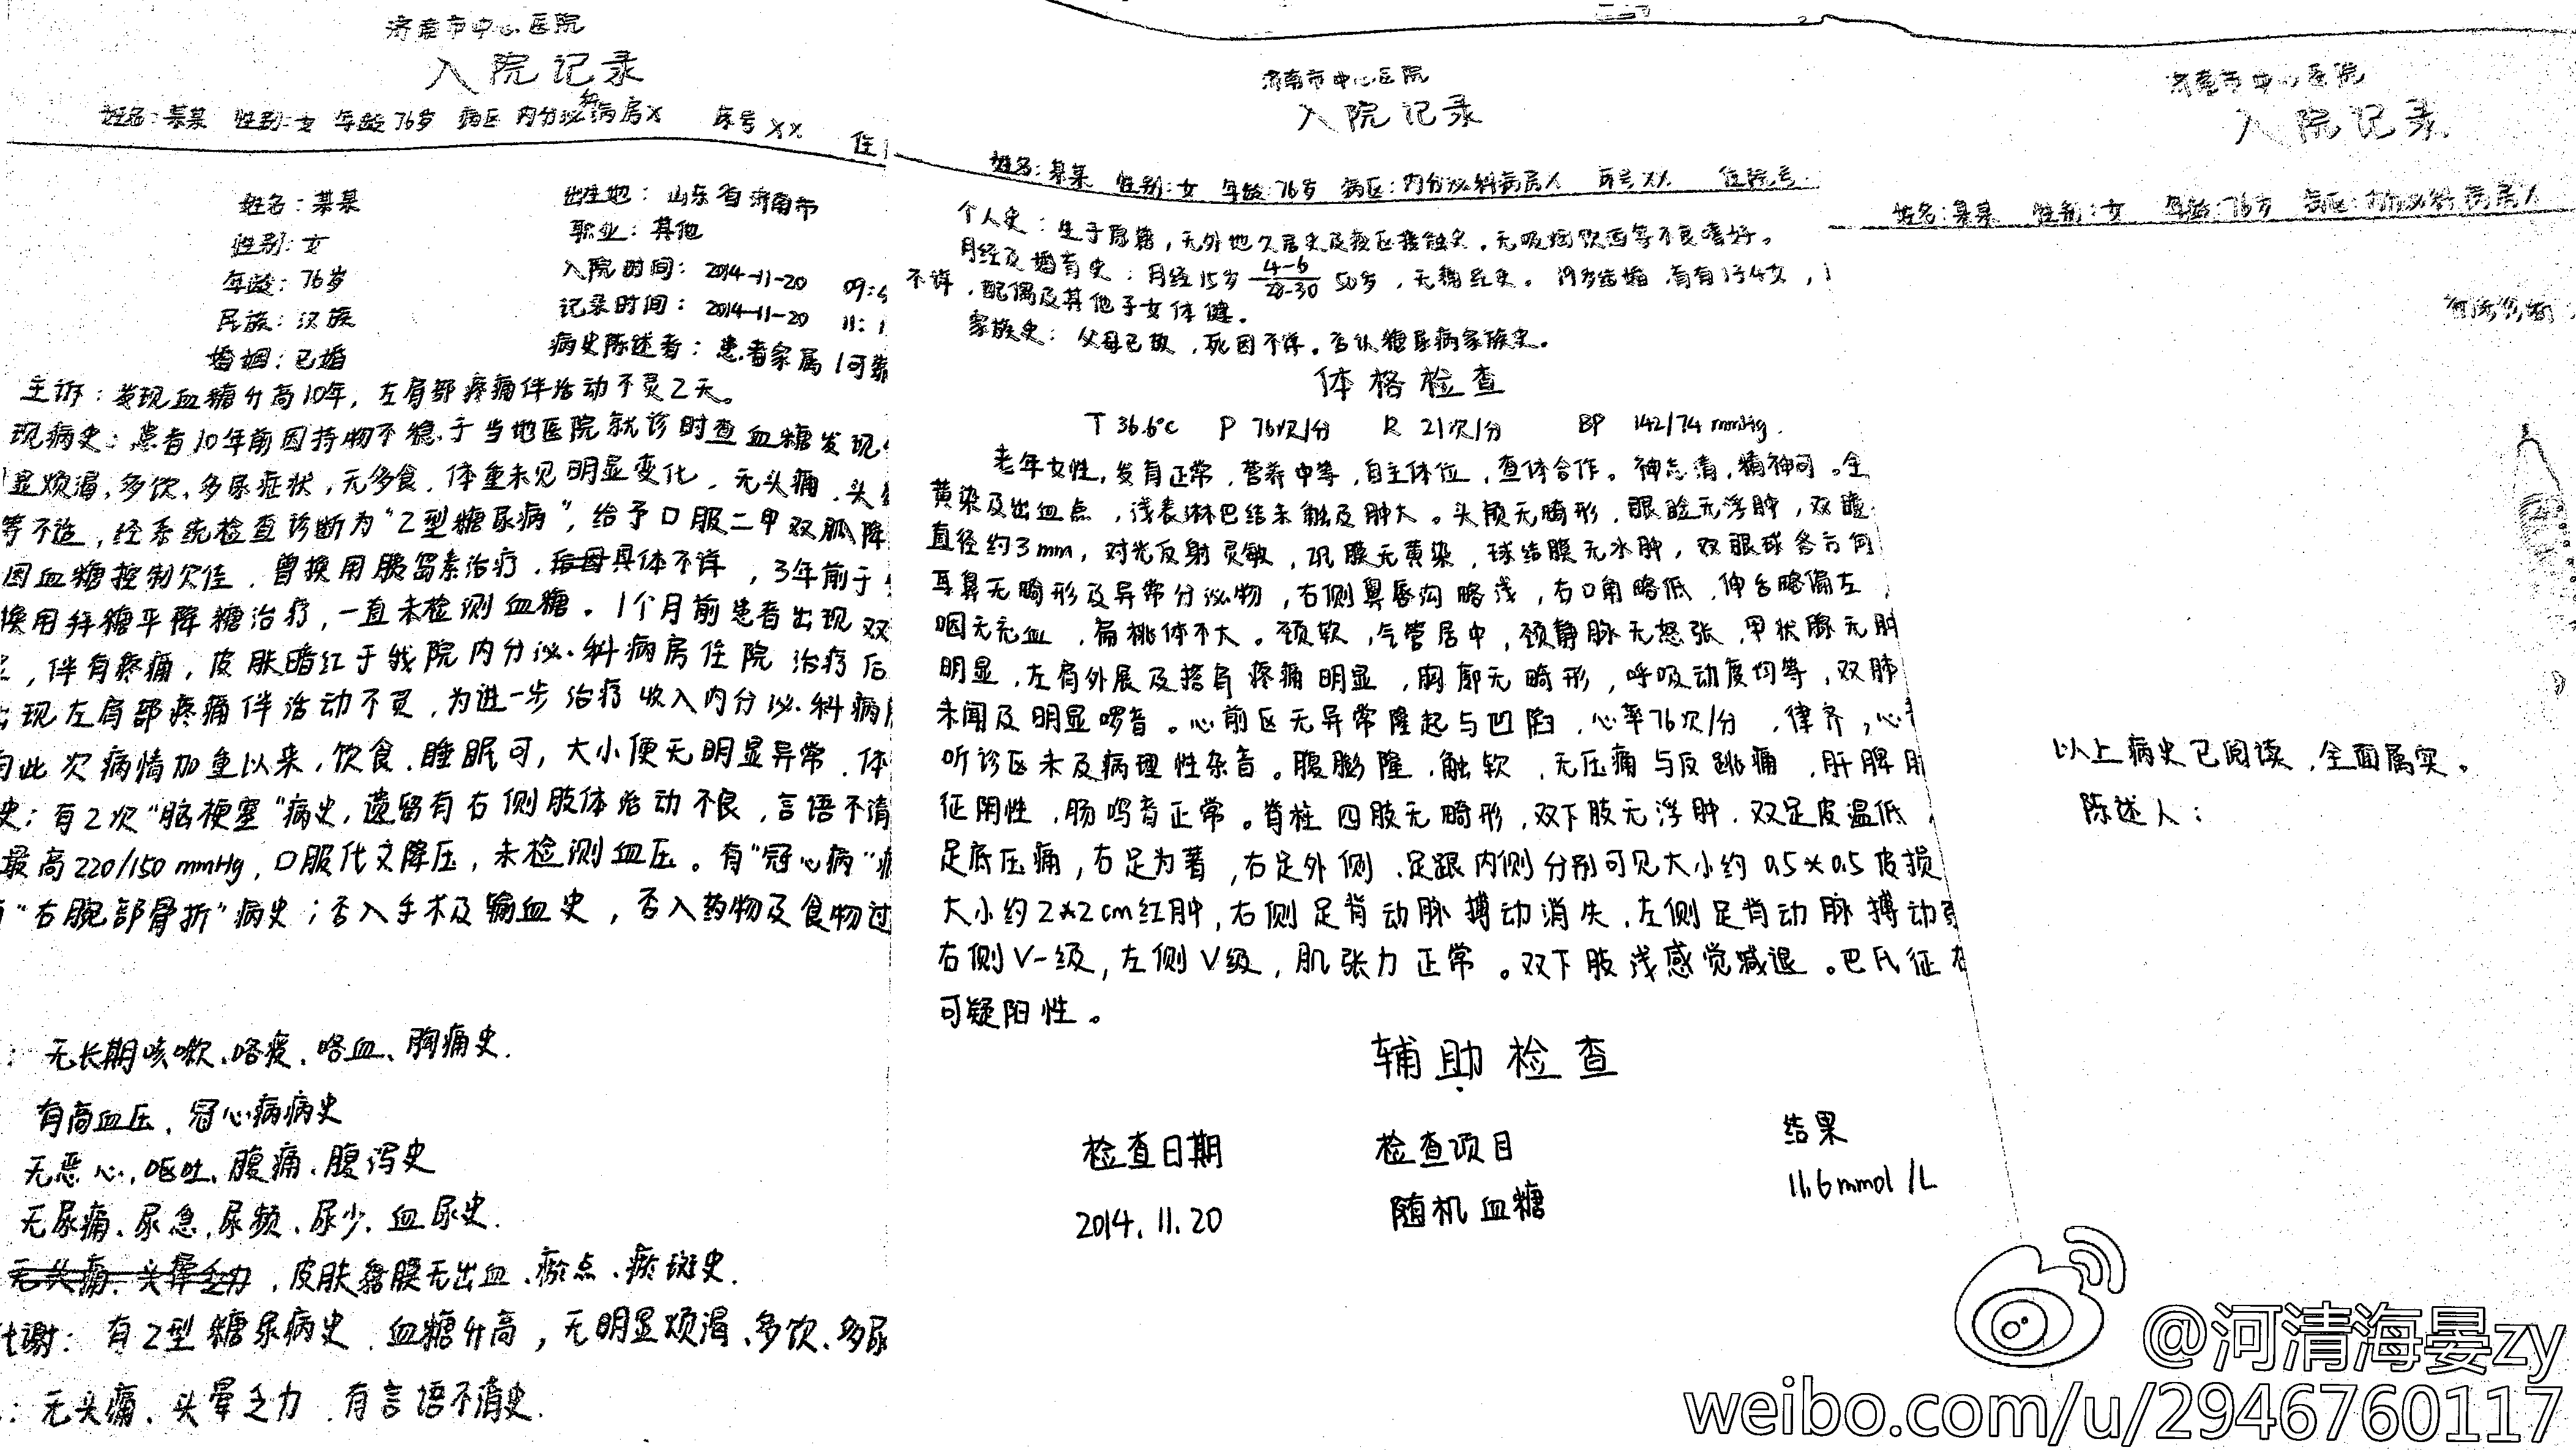 济南市中心医院
入院记录
姓名:某某 性别:女 年龄76岁 病区 内分泌科病房X 床号XX 住
姓名:某某 出生地:山东省济南市
性别:女 职业:其他
年龄:76岁 入院时间:2014-11-20 09:
民族:汉族 记录时间:2014-11-20 11:1
婚姻:已婚 病史陈述者:患者家属 1可靠
主诉:发现血糖升高10年,左肩部疼痛伴活动不灵2天。
现病史:患者10年前因持物不稳于当地医院就诊时查血糖发现
显烦渴,多饮、多尿症状,无多食,体重未见明显变化,无头痛、头
等不适,经系统检查诊断为“2型糖尿病”,给予口服二甲双胍降
因血糖控制欠佳,曾换用胰岛素治疗,具体不详,3年前于
换用拜糖平降糖治疗,一直未检测血糖。1个月前患者出现双
,伴有疼痛,皮肤暗红于我院内分泌科病房住院治疗后
出现左肩部疼痛伴活动不灵,为进一步治疗收入内分泌科病
自此次病情加重以来,饮食、睡眠可,大小便无明显异常,体
史:有2次“脑梗塞”病史,遗留有右侧肢体活动不良,言语不清
最高220/150mmHg,口服代文降压,未检测血压。有“冠心病”病
“右腕部骨折”病史;否入手术及输血史,否入药物及食物过
: 无长期咳嗽、咯痰、咯血、胸痛史.
有高血压、冠心病病史
无恶心、呕吐、腹痛、腹泻史
无尿痛、尿急、尿频、尿少、血尿史.
无头痛、头晕乏力,皮肤黏膜无出血、瘀点、瘀斑史.
代谢: 有2型糖尿病史,血糖升高,无明显烦渴、多饮、多尿
: 无头痛、头晕乏力,有言语不清史.
济南市中心医院
入院记录
姓名:某某 性别:女 年龄:76岁 病区:内分泌科病房人 床号XX 住院号
个人史:生于原籍,无外地久居史及疫区接触史,无吸烟饮酒等不良嗜好。
月经及婚育史:月经15岁 4-6/28-30 50岁,无痛经史。19岁结婚,育有1子4女,
不详,配偶及其他子女体健。
家族史:父母已故,死因不详。否认糖尿病家族史。
体格检查
T 36.6℃ P 76次/分 R 21次/分 BP 142/74mmHg.
老年女性,发育正常,营养中等,自主体位,查体合作。神志清,精神可。全
黄染及出血点,浅表淋巴结未触及肿大。头颅无畸形,眼睑无浮肿,双瞳
直径约3mm,对光反射灵敏,巩膜无黄染,球结膜无水肿,双眼球各方向
耳鼻无畸形及异常分泌物,右侧鼻唇沟略浅,右口角略低,伸舌略偏左,
咽无充血,扁桃体不大。颈软,气管居中,颈静脉无怒张,甲状腺无肿
明显,左肩外展及搭肩疼痛明显,胸廓无畸形,呼吸动度均等,双肺
未闻及明显啰音。心前区无异常隆起与凹陷,心率76次/分,律齐,心
听诊区未及病理性杂音。腹膨隆,触软,无压痛与反跳痛,肝脾肋
征阴性,肠鸣音正常。脊柱四肢无畸形,双下肢无浮肿,双足皮温低,
足底压痛,右足为著,右足外侧、足跟内侧分别可见大小约0.5×0.5皮损
大小约2×2cm红肿,右侧足背动脉搏动消失,左侧足背动脉搏动
右侧V-级,左侧V级,肌张力正常。双下肢浅感觉减退。巴氏征
可疑阳性。
辅助检查
检查日期 检查项目 结果
2014.11.20 随机血糖 11.6mmol/L
济南市中心医院
入院记录
姓名:某某 性别:女 年龄:76岁 病区:内分泌科病房人
以上病史已阅读,全面属实。
陈述人:
@河清海晏zy
weibo.com/u/2946760117